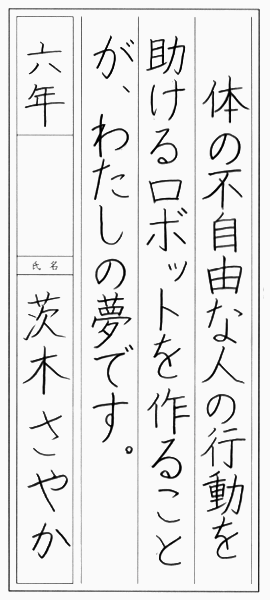 体の不自由な人の行動を
助けるロボットを作ること
が、わたしの夢です。
六年
氏名
茨木さやか